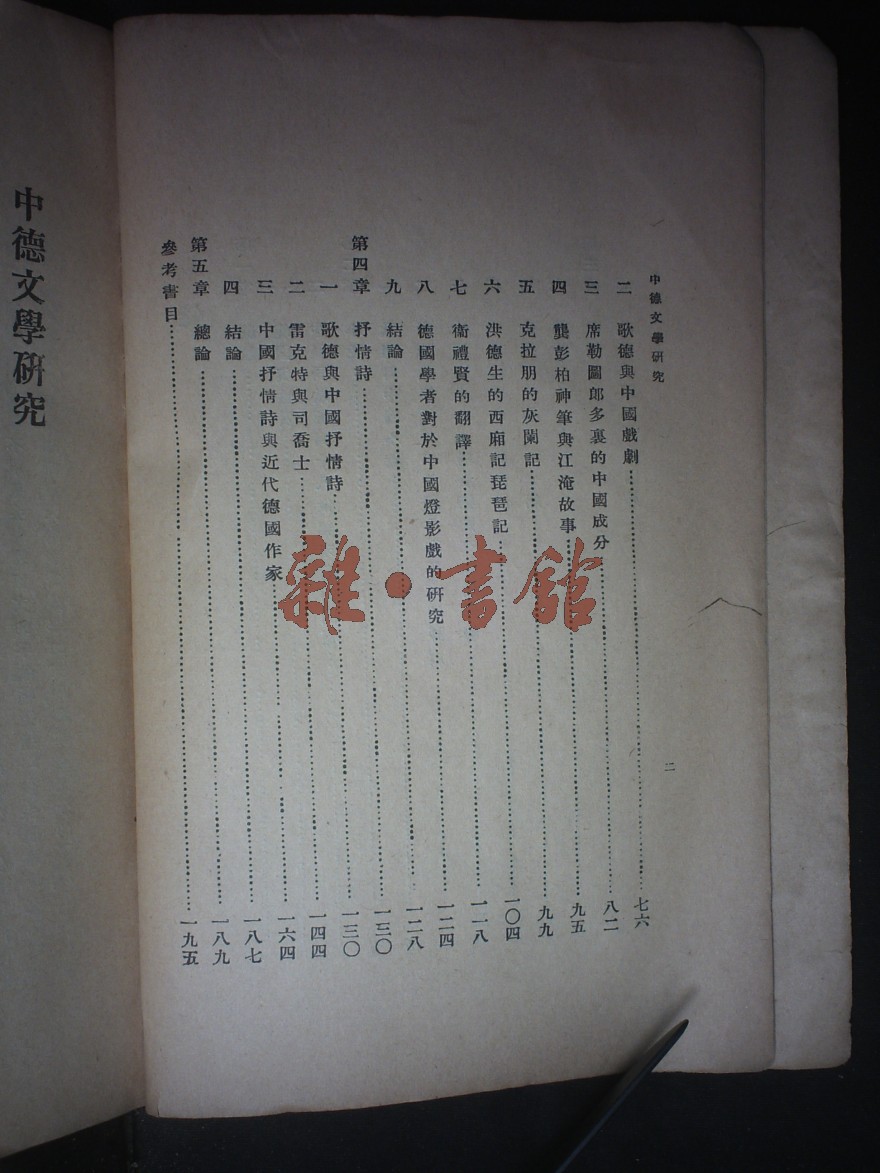 中德文學研究 二
二 歌德與中國戲劇……七六
三 席勒圖郎多裏的中國成分……八二
四 龔彭柏神筆與江淹故事……九五
五 克拉朋的灰闌記……九九
六 洪德生的西廂記琵琶記……一〇四
七 衞禮賢的翻譯……一一八
八 德國學者對於中國燈影戲的研究……一二四
九 結論……一二八
第四章 抒情詩……一三〇
一 歌德與中國抒情詩……一三〇
二 雷克特與司喬士……一四四
三 中國抒情詩與近代德國作家……一六四
四 結論……一八七
第五章 總論……一八九
參考書目……一九五
中德文學研究
雜·書館